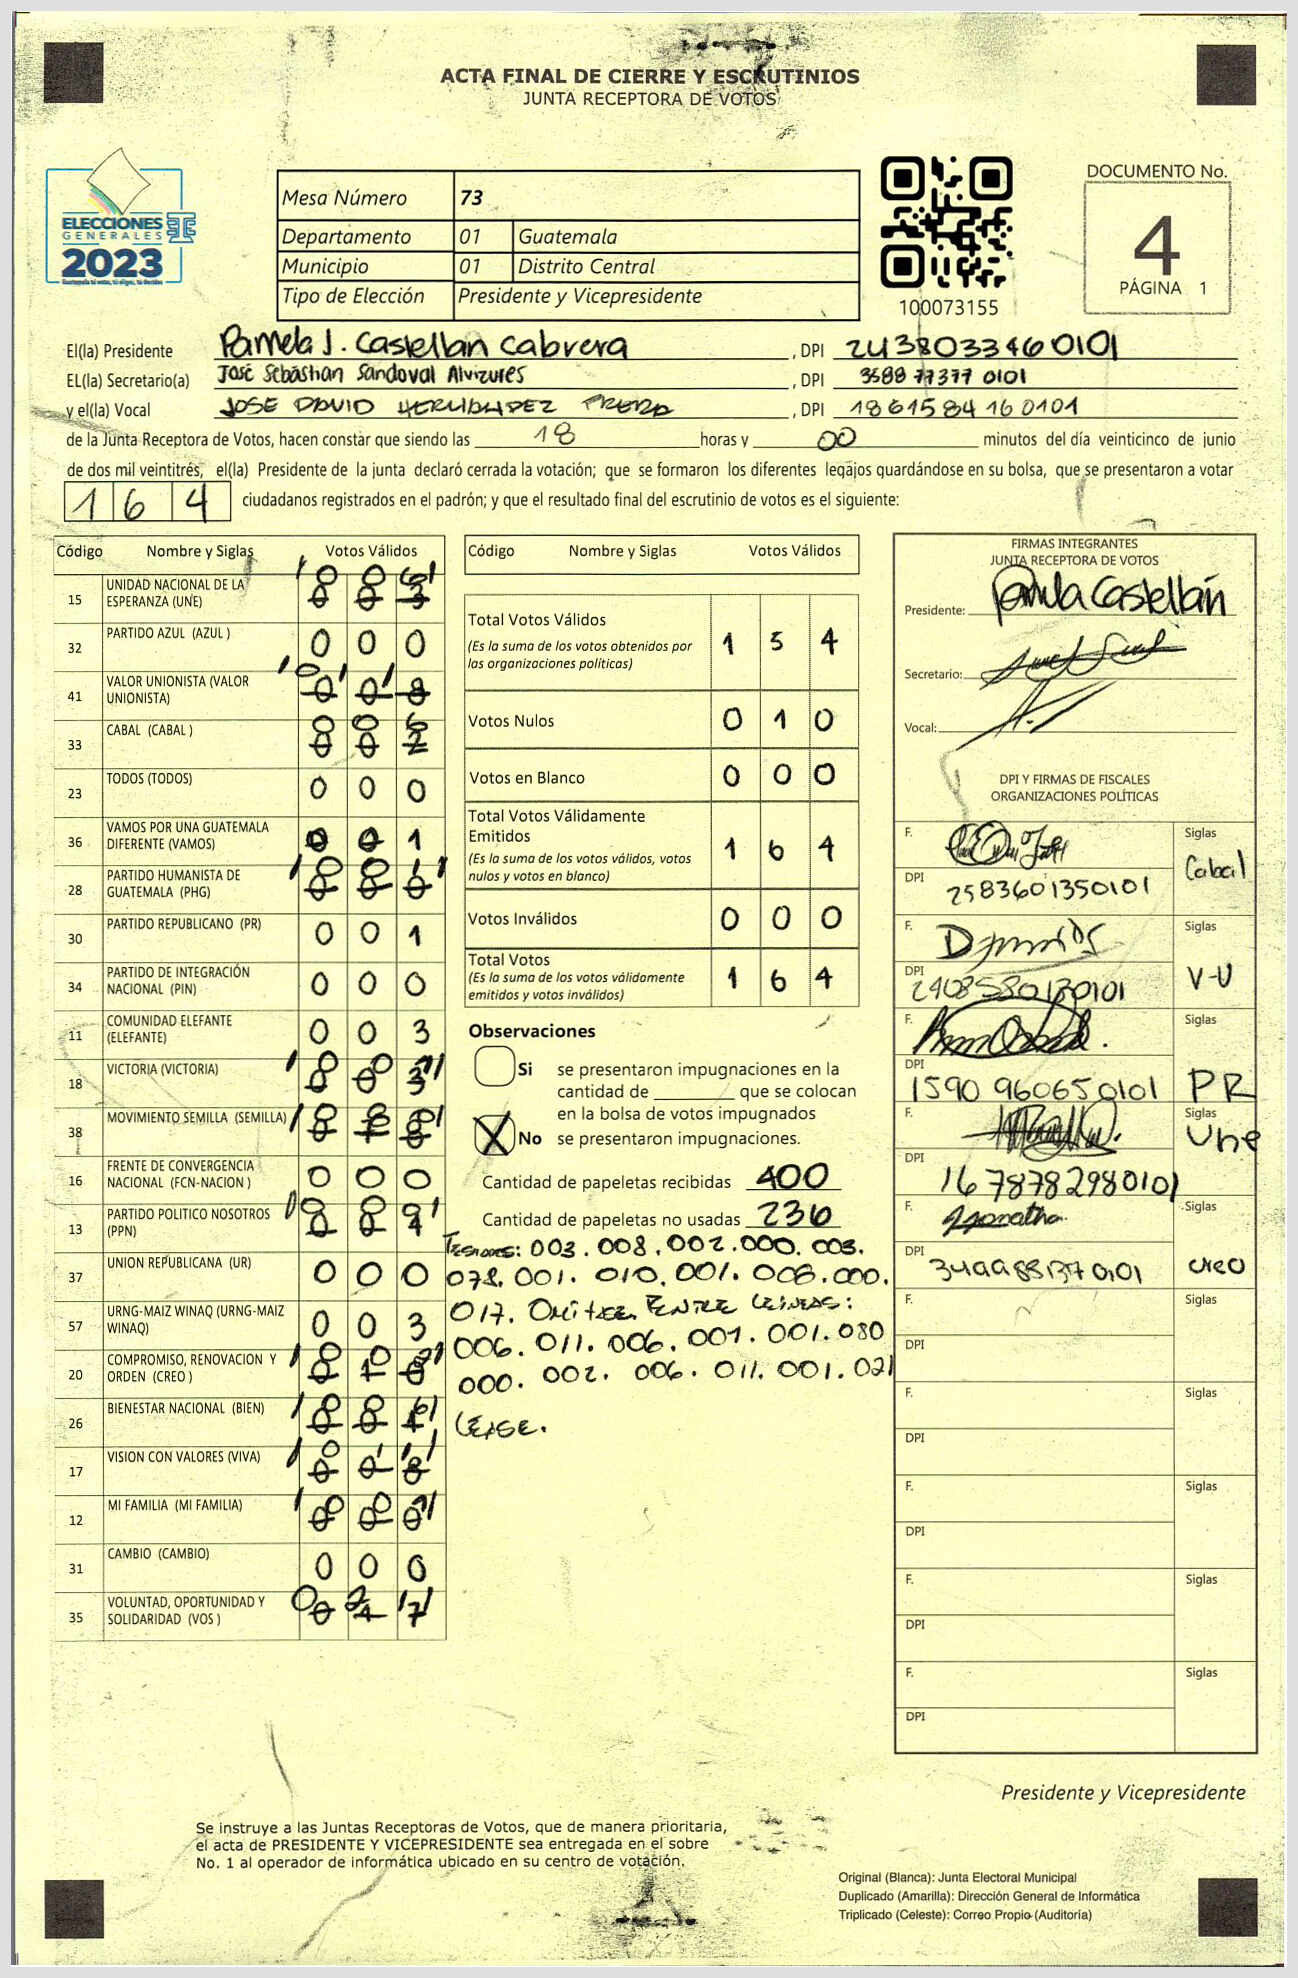 ACTA FINAL DE CIERRE Y ESCRUTINIOS
JUNTA RECEPTORA DE VOTOS
ELECCIONES
GENERALES
2023
Mesa Número 73
Departamento 01 Guatemala
Municipio 01 Distrito Central
Tipo de Elección Presidente y Vicepresidente
100073155
DOCUMENTO No.
4
PÁGINA 1
El(la) Presidente Pamela J. Castellan Cabrera , DPI 2438033460101
EL(la) Secretario(a) José Sebástian Sandoval Alvizures , DPI 3588 77377 0101
y el(la) Vocal JOSE DAVID , DPI 1861584160101
de la Junta Receptora de Votos, hacen constar que siendo las 18 horas y 00 minutos del día veinticinco de junio
de dos mil veintitrés, el(la) Presidente de la junta declaró cerrada la votación; que se formaron los diferentes legajos guardándose en su bolsa, que se presentaron a votar
164 ciudadanos registrados en el padrón; y que el resultado final del escrutinio de votos es el siguiente:
Código Nombre y Siglas Votos Válidos
15 UNIDAD NACIONAL DE LA ESPERANZA (UNE) 0 0 6 0 0 3
32 PARTIDO AZUL (AZUL ) 0 0 0
41 VALOR UNIONISTA (VALOR UNIONISTA) 0 1 1 0 0 8
33 CABAL (CABAL ) 0 0 6 0 0 2
23 TODOS (TODOS) 0 0 0
36 VAMOS POR UNA GUATEMALA DIFERENTE (VAMOS) 0 0 1
28 PARTIDO HUMANISTA DE GUATEMALA (PHG) 0 0 1 0 0 0
30 PARTIDO REPUBLICANO (PR) 0 0 1
34 PARTIDO DE INTEGRACIÓN NACIONAL (PIN) 0 0 0
11 COMUNIDAD ELEFANTE (ELEFANTE) 0 0 3
18 VICTORIA (VICTORIA) 0 0 1 0 0 3
38 MOVIMIENTO SEMILLA (SEMILLA) 0 8 0 0 7 8
16 FRENTE DE CONVERGENCIA NACIONAL (FCN-NACION ) 0 0 0
13 PARTIDO POLITICO NOSOTROS (PPN) 0 0 0 0 0 1
37 UNION REPUBLICANA (UR) 0 0 0
57 URNG-MAIZ WINAQ (URNG-MAIZ WINAQ) 0 0 3
20 COMPROMISO, RENOVACION Y ORDEN (CREO ) 0 0 2 0 1 0
26 BIENESTAR NACIONAL (BIEN) 0 0 6 0 0 1
17 VISION CON VALORES (VIVA) 0 1 1 0 0 8
12 MI FAMILIA (MI FAMILIA) 0 0 1 0 0 0
31 CAMBIO (CAMBIO) 0 0 0
35 VOLUNTAD, OPORTUNIDAD Y SOLIDARIDAD (VOS ) 0 2 1 0 1 7
Código Nombre y Siglas Votos Válidos
Total Votos Válidos 1 5 4
(Es la suma de los votos obtenidos por
las organizaciones políticas)
Votos Nulos 0 1 0
Votos en Blanco 0 0 0
Total Votos Válidamente
Emitidos 1 6 4
(Es la suma de los votos válidos, votos
nulos y votos en blanco)
Votos Inválidos 0 0 0
Total Votos 1 6 4
(Es la suma de los votos válidamente
emitidos y votos inválidos)
Observaciones
Si se presentaron impugnaciones en la
cantidad de que se colocan
en la bolsa de votos impugnados
X No se presentaron impugnaciones.
Cantidad de papeletas recibidas 400
Cantidad de papeletas no usadas 236
003. 008. 002. 000. 003.
078. 001. 010. 001. 008. 000.
017. ENTRE LINEAS:
006. 011. 006. 001. 001. 080
000. 002. 006. 011. 001. 021
LEASE.
FIRMAS INTEGRANTES
JUNTA RECEPTORA DE VOTOS
Presidente: Pamela Castellán
Secretario:
Vocal:
DPI Y FIRMAS DE FISCALES
ORGANIZACIONES POLÍTICAS
F. Siglas Cabal
DPI 2583601350101
F. Siglas V-U
DPI 2408580130101
F. Siglas PR
DPI 1590 960650101
F. Siglas Une
DPI 1678782980101
F. Siglas creo
DPI
F. Siglas
DPI
F. Siglas
DPI
F. Siglas
DPI
F. Siglas
DPI
F. Siglas
DPI
Presidente y Vicepresidente
Se instruye a las Juntas Receptoras de Votos, que de manera prioritaria,
el acta de PRESIDENTE Y VICEPRESIDENTE sea entregada en el sobre
No. 1 al operador de informática ubicado en su centro de votación.
Original (Blanca): Junta Electoral Municipal
Duplicado (Amarilla): Dirección General de Informática
Triplicado (Celeste): Correo Propio (Auditoría)